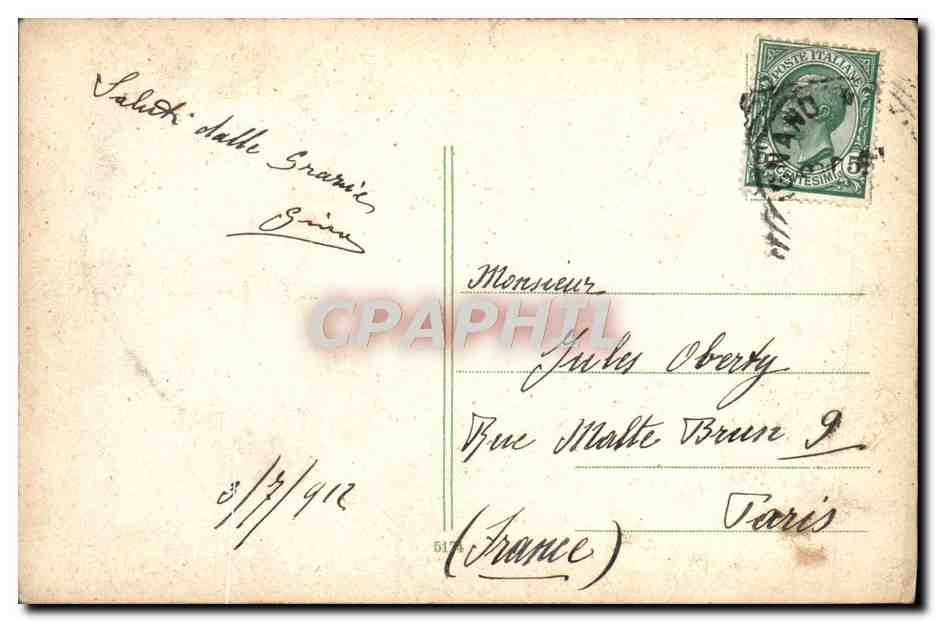 Saluti dalle Grazie
Gino
3/7/912
POSTE ITALIANE
CENTESIMI 5
Monsieur
Jules Oberty
Rue Malte Brun 9
Paris
(France)
5174
CPAPHIL